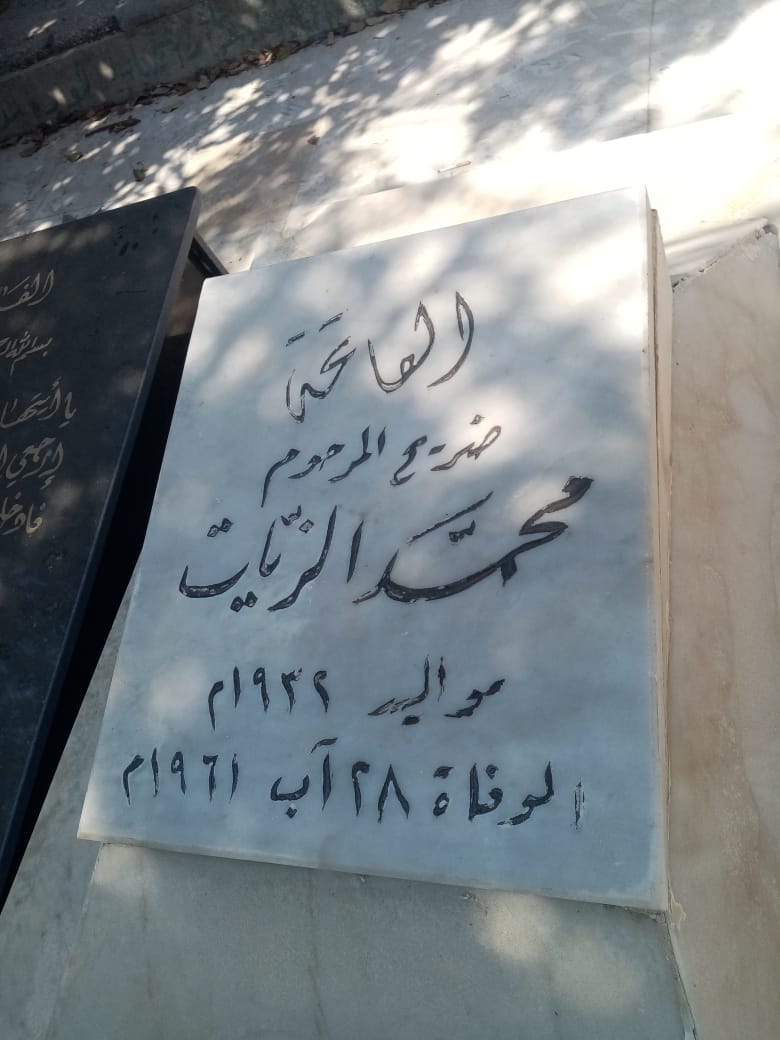 الفاتحة
ضريح المرحوم
محمّد الزيّات
مواليد ١٩٣٢م
الوفاة ٢٨ آب ١٩٦١م
بسم الله
يا أيتها
إرجعي